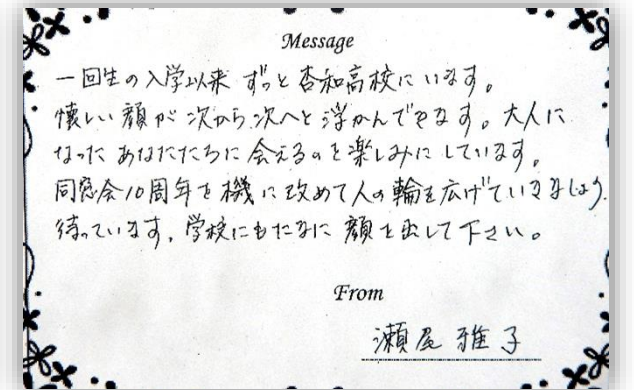 Message
一回生の入学以来 ずっと杏和高校にいます。
懐しい顔が次から次へと浮かんできます。大人に
なったあなたたちに会えるのを楽しみにしています。
同窓会10周年を機に改めて人の輪を広げていきましょう。
待っています。学校にもたまに顔を出して下さい。
From
瀬尾雅子